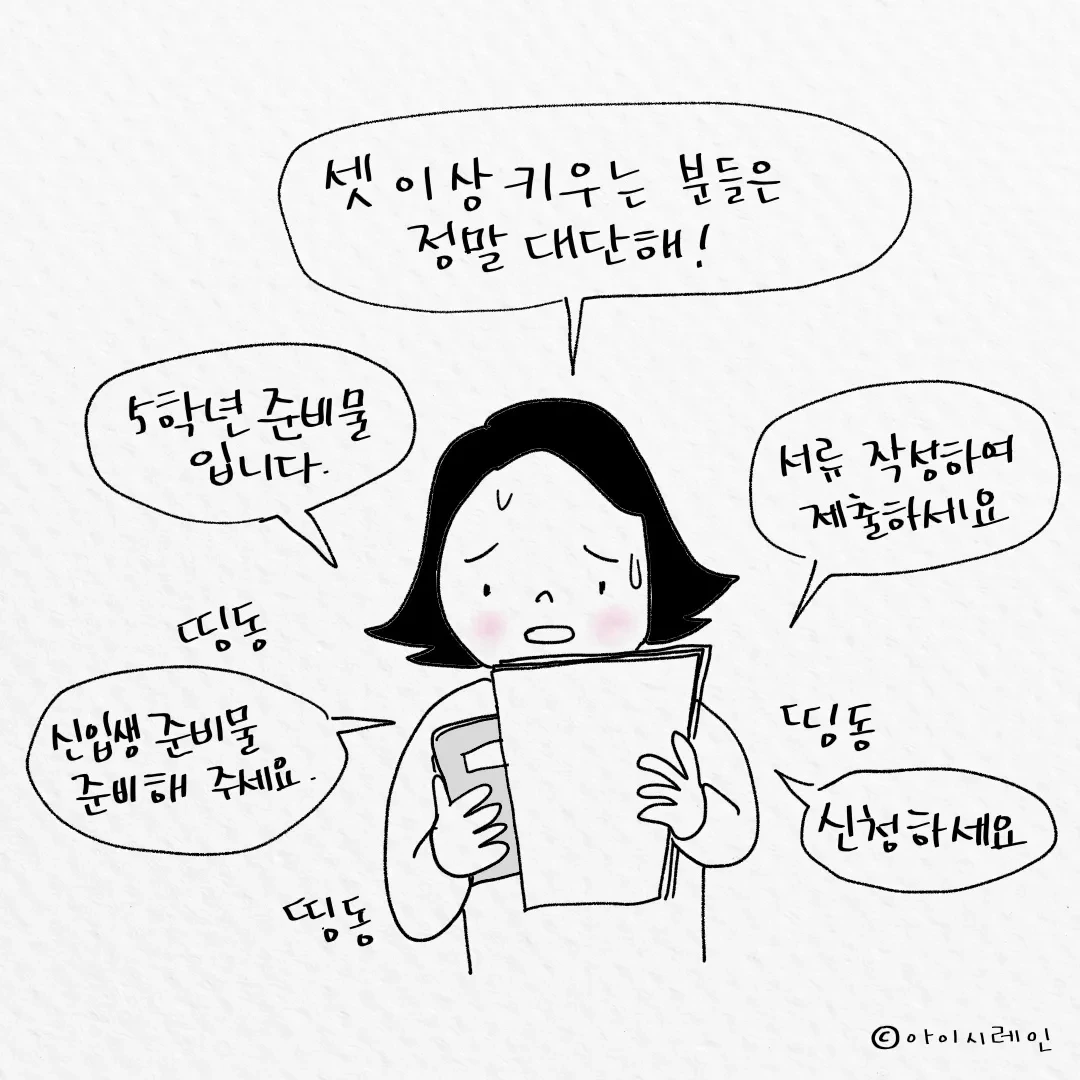 셋 이상 키우는 분들은
정말 대단해!
5학년 준비물
입니다.
서류 작성하여
제출하세요
띵동
신입생 준비물
준비해 주세요.
띵동
신청하세요
띵동
©아이시레인